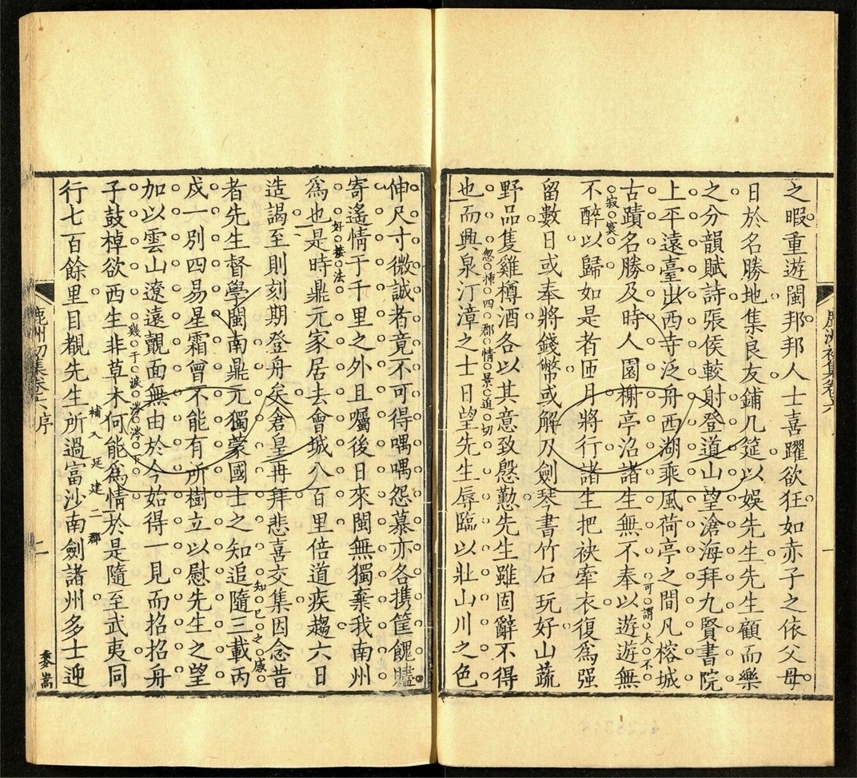 之暇重遊閩邦邦人士喜躍欲狂如赤子之依父母
日於名勝地集良友鋪几筵以娛先生先生顧而樂
之分韻賦詩張侯較射登道山望滄海拜九賢書院
上平遠臺出西寺泛舟西湖乘風荷亭之間凡榕城
可謂大不
古蹟名勝及時人園榭亭沼諸生無不奉以遊遊無
寂寞
不醉以歸如是者匝月將行諸生把袂牽衣復爲强
留數日或奉將錢幣或解刀劍琴書竹石玩好山蔬
野品隻雞樽酒各以其意致慇懃先生雖固辭不得
忽揷四郡情景迫切
也而興泉汀漳之士日望先生辱臨以壯山川之色
伸尺寸微誠者竟不可得喁喁怨慕亦各携筐餽贐
寄遙情于千里之外且囑後日來閩無獨棄我南州
好接法
爲也是時鼎元家居去會城八百里倍道疾趨六日
造謁至則刻期登舟矣倉皇再拜悲喜交集因念昔
知己之感
者先生督學閩南鼎元獨蒙國士之知追隨三載丙
戌一別四易星霜曾不能有所樹立以慰先生之望
加以雲山遼遠覿面無由於今始得一見而招招舟
幾于淚涔涔下
子鼓棹欲西生非草木何能爲情於是隨至武夷同
補入延建二郡
行七百餘里目覩先生所過富沙南劍諸州多士迎
鹿洲初集卷六序
二